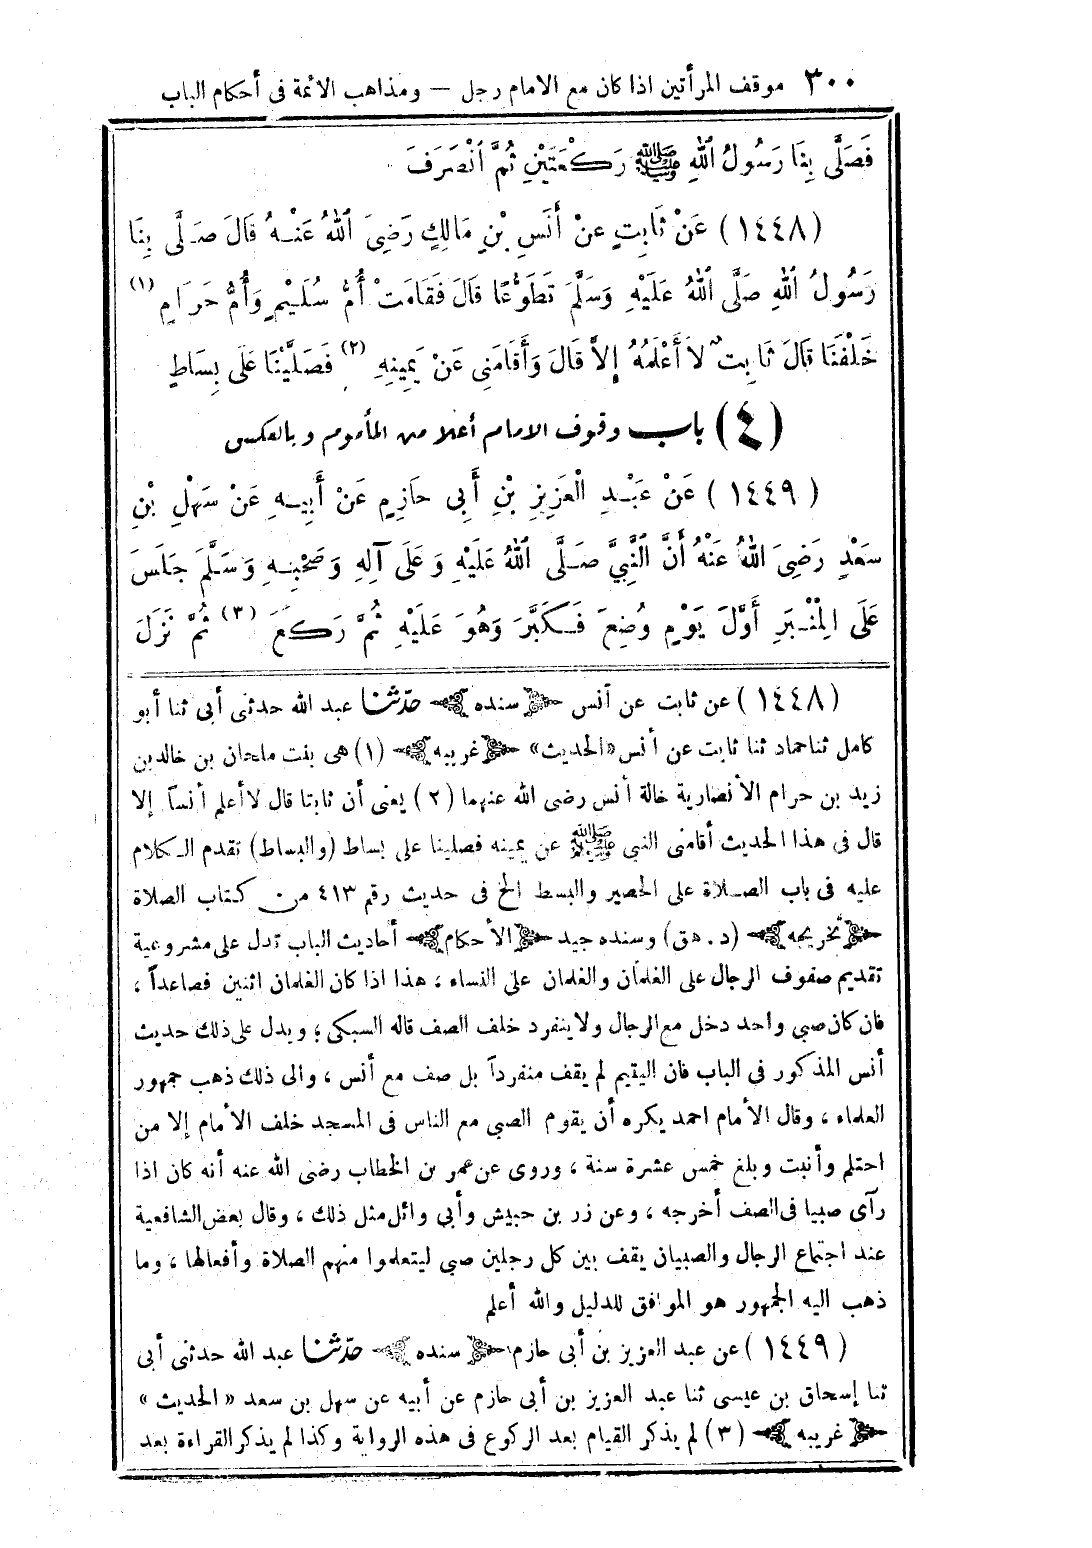 ٣٠٠ موقف المرأتين اذا كان مع الامام رجل — ومذاهب الائمة فى أحكام الباب
فَصَلَّى بِنَا رَسُولُ اللهِ ﷺ رَكْعَتَيْنِ ثُمَّ انْصَرَفَ
(١٤٤٨) عَنْ ثَابِتٍ عَنْ أَنَسِ بْنِ مَالِكٍ رَضِيَ اللهُ عَنْهُ قَالَ صَلَّى بِنَا
رَسُولُ اللهِ صَلَّى اللهُ عَلَيْهِ وَسَلَّمَ تَطَوُّعًا قَالَ فَقَامَتْ أُمُّ سُلَيْمٍ وَأُمُّ حَرَامٍ (١)
خَلْفَنَا قَالَ ثَابِتٌ لاَ أَعْلَمُهُ إِلاَّ قَالَ وَأَقَامَنِى عَنْ يَمِينِهِ (٢) فَصَلَّيْنَا عَلَى بِسَاطٍ
(٤) باب وقوف الامام أعلا من المأموم وبالعكس
(١٤٤٩) عَنْ عَبْدِ الْعَزِيزِ بْنِ أَبِى حَازِمٍ عَنْ أَبِيهِ عَنْ سَهْلِ بْنِ
سَعْدٍ رَضِيَ اللهُ عَنْهُ أَنَّ النَّبِيَّ صَلَّى اللهُ عَلَيْهِ وَعَلَى آلِهِ وَصَحْبِهِ وَسَلَّمَ جَلَسَ
عَلَى الْمِنْبَرِ أَوَّلَ يَوْمٍ وُضِعَ فَكَبَّرَ وَهُوَ عَلَيْهِ ثُمَّ رَكَعَ (٣) ثُمَّ نَزَلَ
(١٤٤٨) عن ثابت عن أنس ﴿سنده﴾ حدّثنا عبد الله حدثنى أبى ثنا أبو
كامل ثنا حماد ثنا ثابت عن أنس «الحديث» ﴿غريبه﴾ (١) هى بنت ملحان بن خالد بن
زيد بن حرام الأنصارية خالة أنس رضى الله عنهما (٢) يعنى أن ثابتا قال لا أعلم أنساً إلا
قال فى هذا الحديث أقامنى النبى ﷺ عن يمينه فصلينا على بساط (والبساط) تقدم الكلام
عليه فى باب الصلاة على الحصير والبسط الخ فى حديث رقم ٤١٣ من كتاب الصلاة
﴿تخريجه﴾ (د . هق) وسنده جيد ﴿الأحكام﴾ أحاديث الباب تدل على مشروعية
تقديم صفوف الرجال على الغلمان والغلمان على النساء ، هذا اذا كان الغلمان اثنين فصاعداً ،
فان كان صبي واحد دخل مع الرجال ولا ينفرد خلف الصف قاله السبكى ؛ ويدل على ذلك حديث
أنس المذكور فى الباب فان اليتيم لم يقف منفرداً بل صف مع أنس ، والى ذلك ذهب جمهور
العلماء ، وقال الأمام احمد يكره أن يقوم الصبي مع الناس فى المسجد خلف الأمام إلا من
احتلم وأنبت وبلغ خمس عشرة سنة ، وروى عن عمر بن الخطاب رضى الله عنه أنه كان اذا
رآى صبيا فى الصف أخرجه ، وعن زر بن حبيش وأبي وائل مثل ذلك ، وقال بعض الشافعية
عند اجتماع الرجال والصبيان يقف بين كل رجلين صبي ليتعلموا منهم الصلاة وأفعالها ، وما
ذهب اليه الجمهور هو الموافق للدليل والله أعلم
(١٤٤٩) عن عبد العزيز بن أبى حازم ﴿سنده﴾ حدّثنا عبد الله حدثنى أبى
ثنا إسحاق بن عيسى ثنا عبد العزيز بن أبى حازم عن أبيه عن سهل بن سعد «الحديث»
﴿غريبه﴾ (٣) لم يذكر القيام بعد الركوع فى هذه الرواية وكذا لم يذكر القراءة بعد